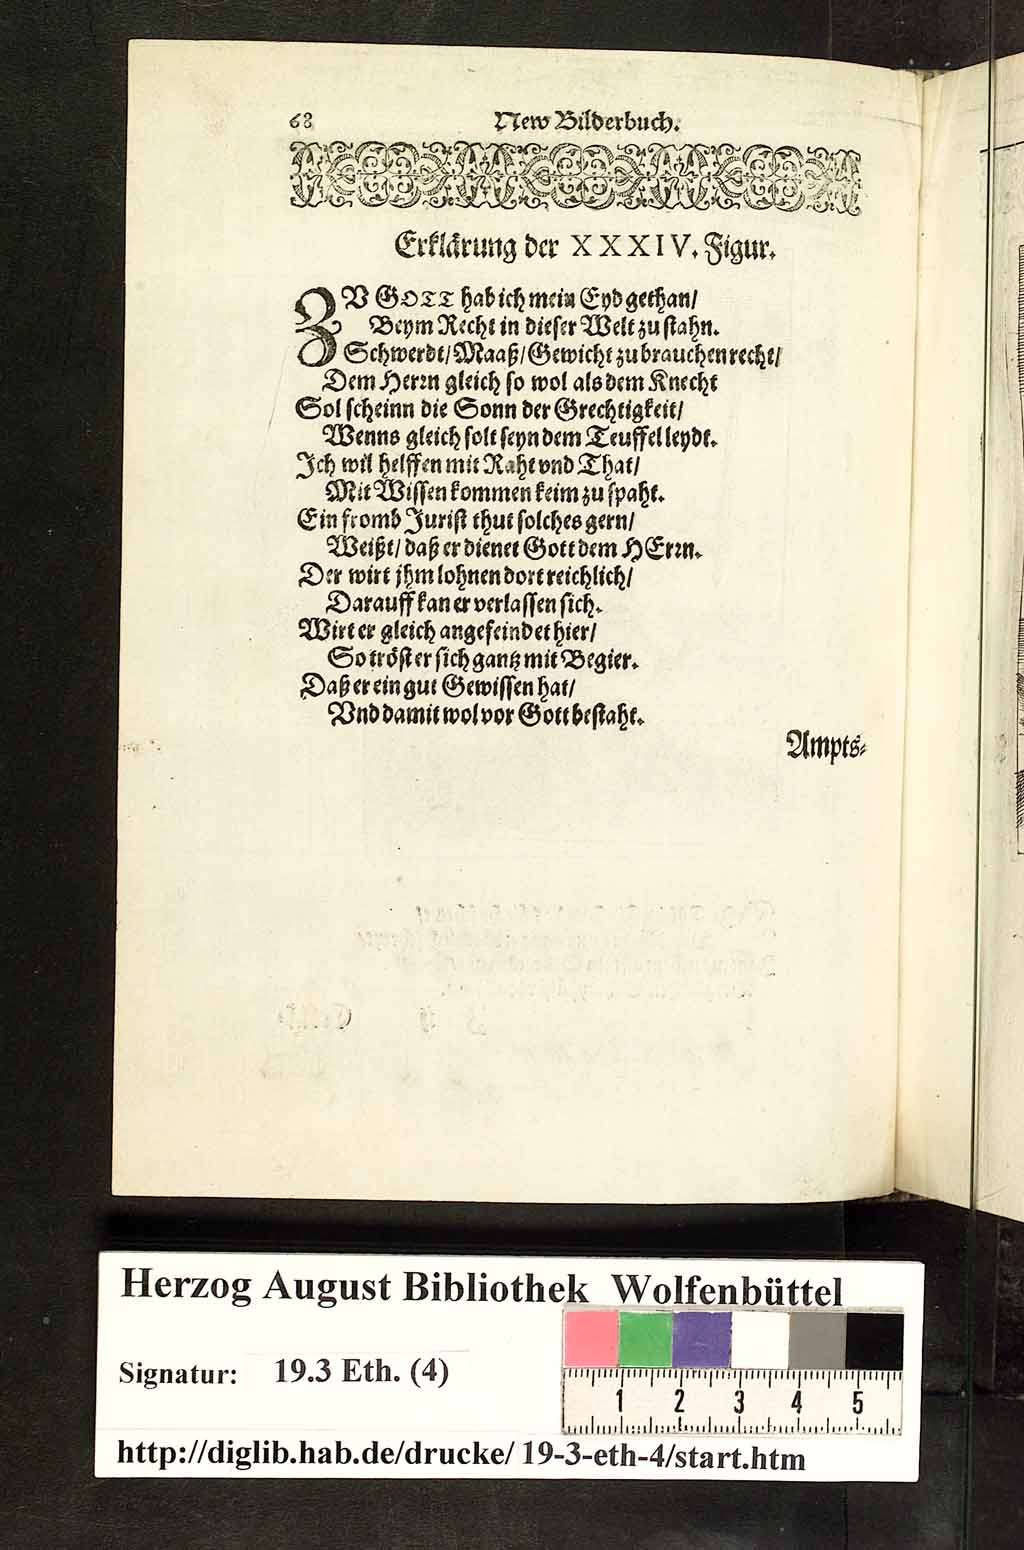 68 New Bilderbuch.
Erklärung der XXXIV. Figur.
ZV GOTT hab ich mein Eyd gethan/
Beym Recht in dieser Welt zu stahn.
Schwerdt/ Maaß/ Gewicht zu brauchen recht/
Dem Herrn gleich so wol als dem Knecht
Sol scheinn die Sonn der Grechtigkeit/
Wenns gleich solt seyn dem Teuffel leydt.
Ich wil helffen mit Raht vnd That/
Mit Wissen kommen keim zu spaht.
Ein fromb Jurist thut solches gern/
Weißt/ daß er dienet Gott dem HErrn.
Der wirt jhm lohnen dort reichlich/
Darauff kan er verlassen sich.
Wirt er gleich angefeindet hier/
So tröst er sich gantz mit Begier.
Daß er ein gut Gewissen hat/
Vnd damit wol vor Gott bestaht.
Ampts-
Herzog August Bibliothek Wolfenbüttel
Signatur: 19.3 Eth. (4)
1 2 3 4 5
http://diglib.hab.de/drucke/ 19-3-eth-4/start.htm